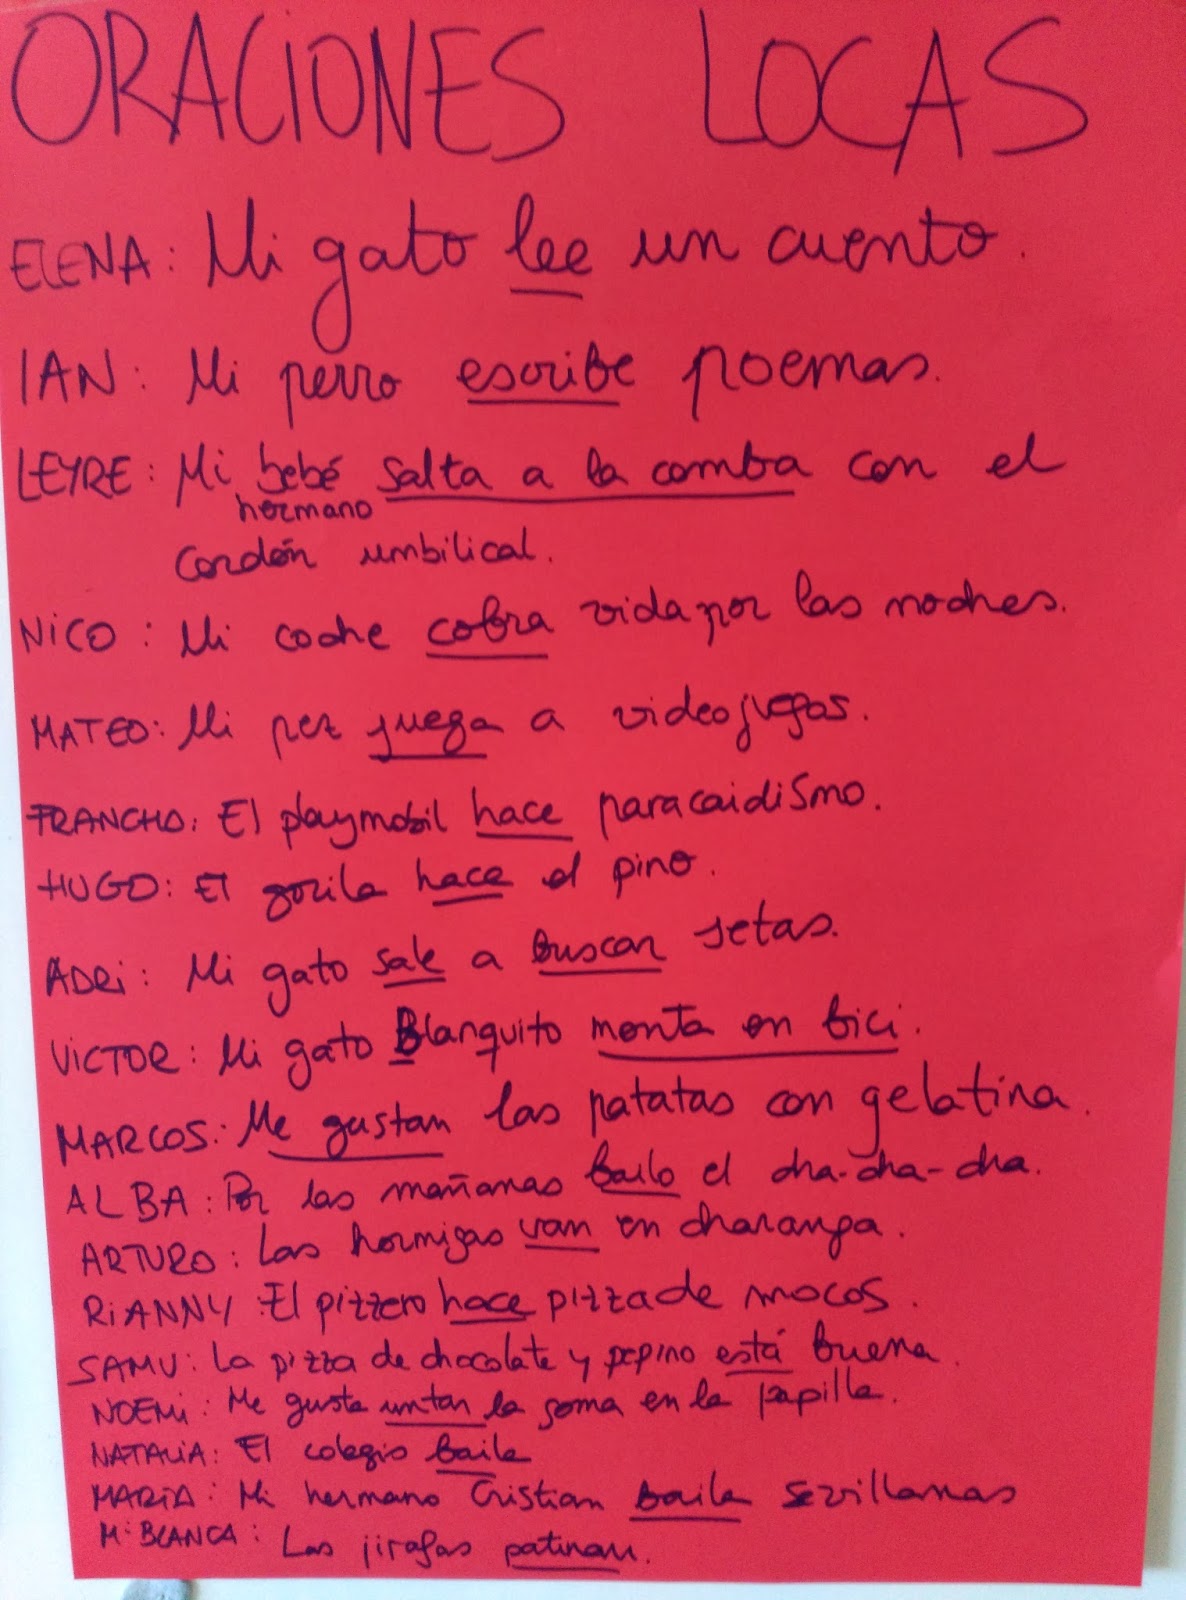 ORACIONES LOCAS
ELENA: Mi gato lee un cuento.
IAN: Mi perro escribe poemas.
LEYRE: Mi bebé salta a la comba con el
hermano
Cordón umbilical.
NICO: Mi coche cobra vida por las noches.
MATEO: Mi pez juega a videojuegos.
FRANCHO: El playmobil hace paracaidismo.
HUGO: El gorila hace el pino.
ADRI: Mi gato sale a buscar setas.
VICTOR: Mi gato Blanquito monta en bici.
MARCOS: Me gustan las patatas con gelatina.
ALBA: Por las mañanas bailo el cha-cha-cha.
ARTURO: Las hormigas van en charanga.
RIANNY: El pizzero hace pizza de mocos.
SAMU: La pizza de chocolate y pepino está buena.
NOEMI: Me gusta untar la goma en la papilla.
NATALIA: El colegio baila
MARIA: Mi hermano Cristian baila sevillanas
Mª BLANCA: Las jirafas patinan.